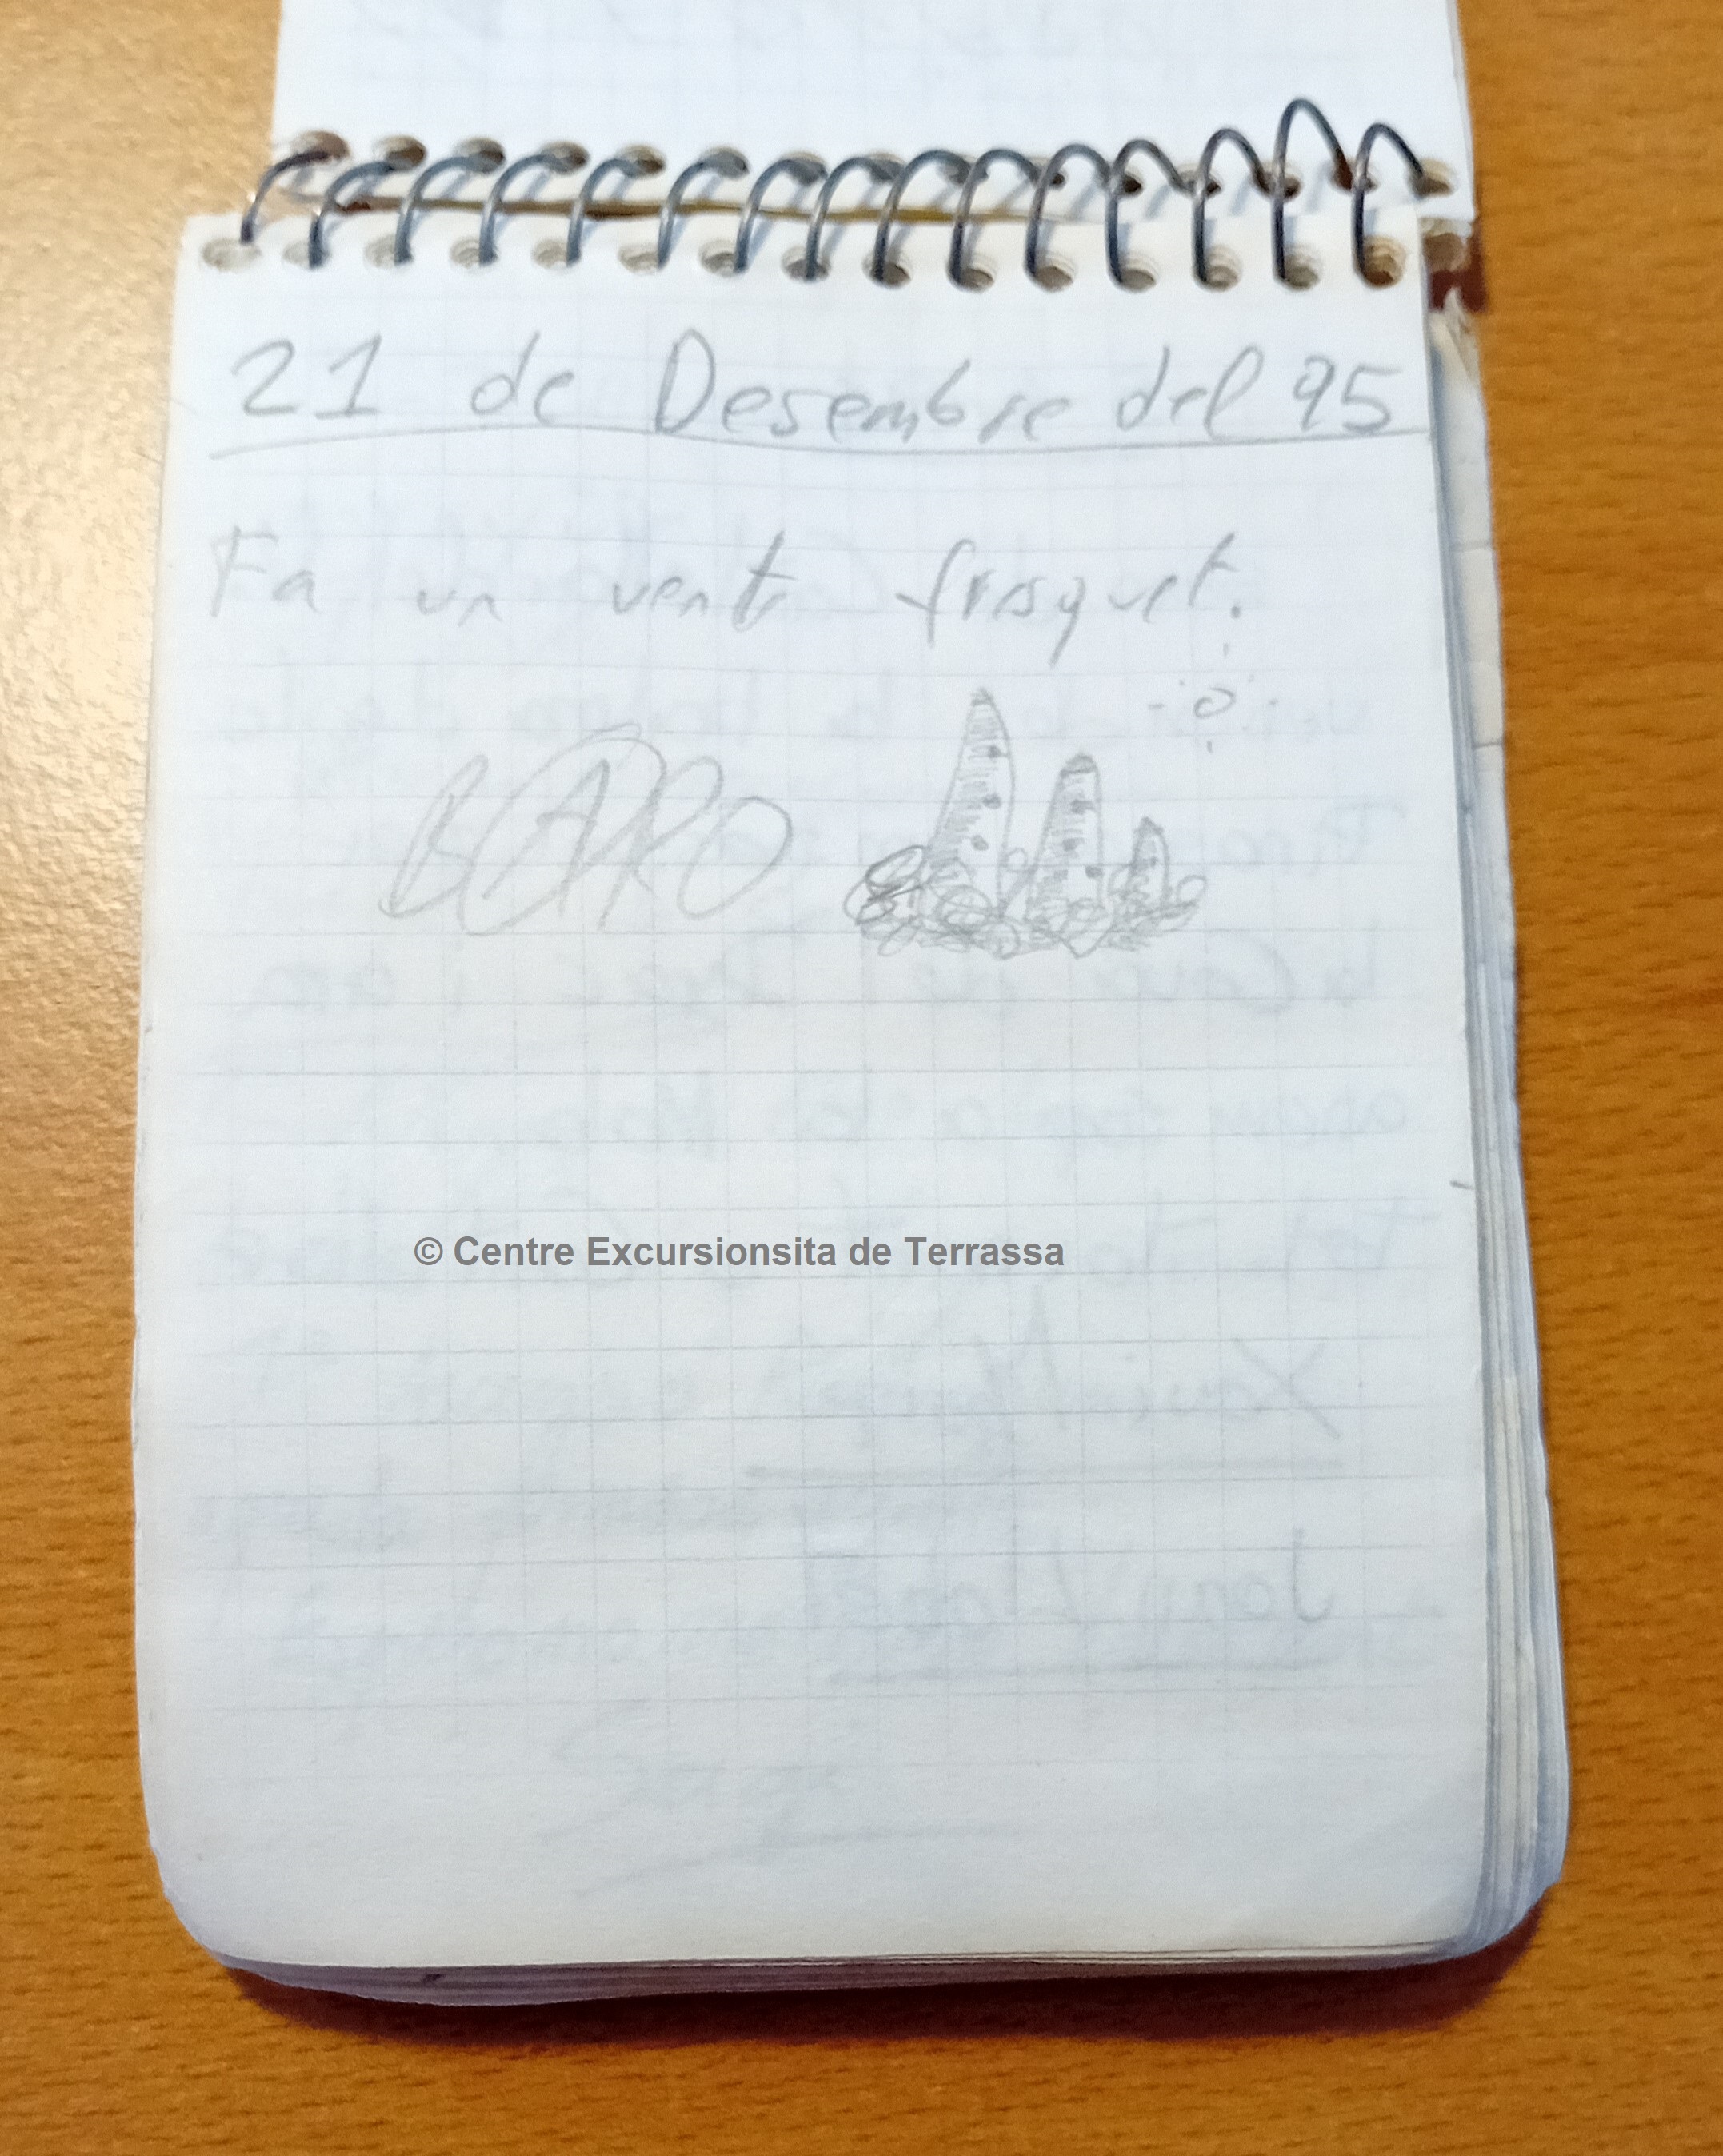 21 de Desembre del 95
Fa un vent fresquet.
BARO
© Centre Excursionsita de Terrassa